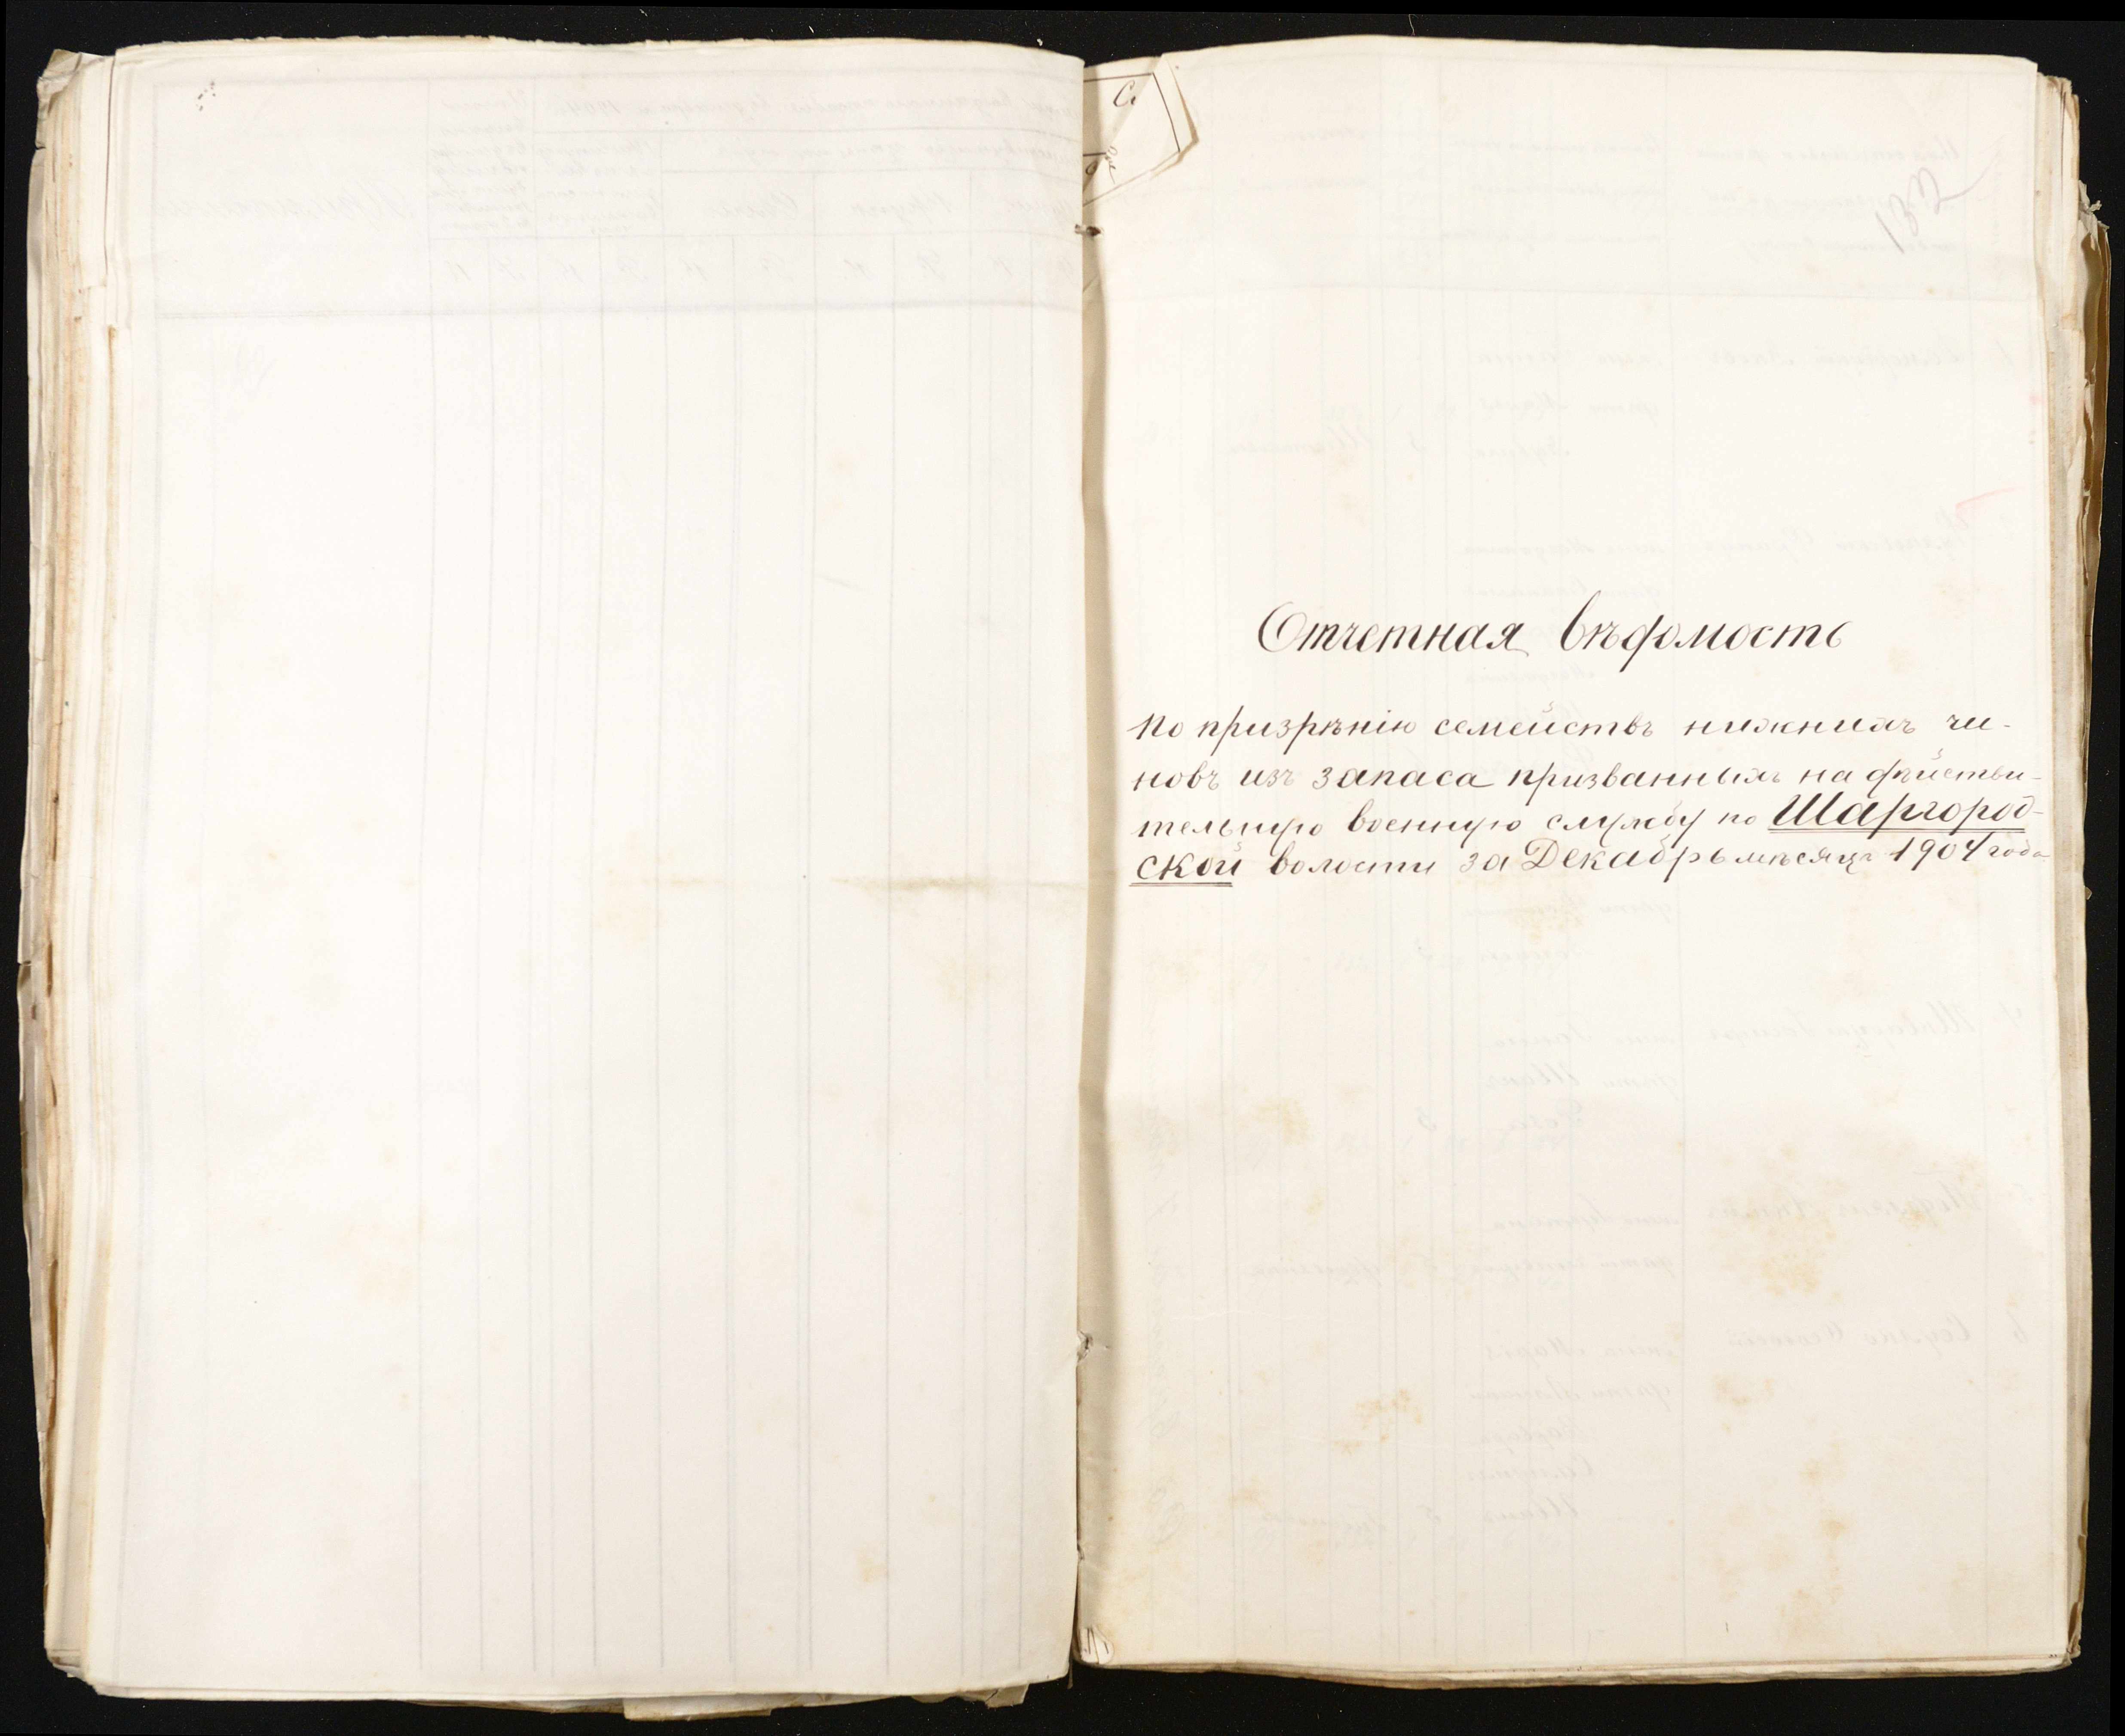 132
Отчетная вѣдомость
по призрѣнію семействъ нижнихъ чи-
новъ изъ запаса призванныхъ на дѣйстви-
тельную военную службу по Шаргород-
ской волости за Декабрь мѣсяцъ 1904 года